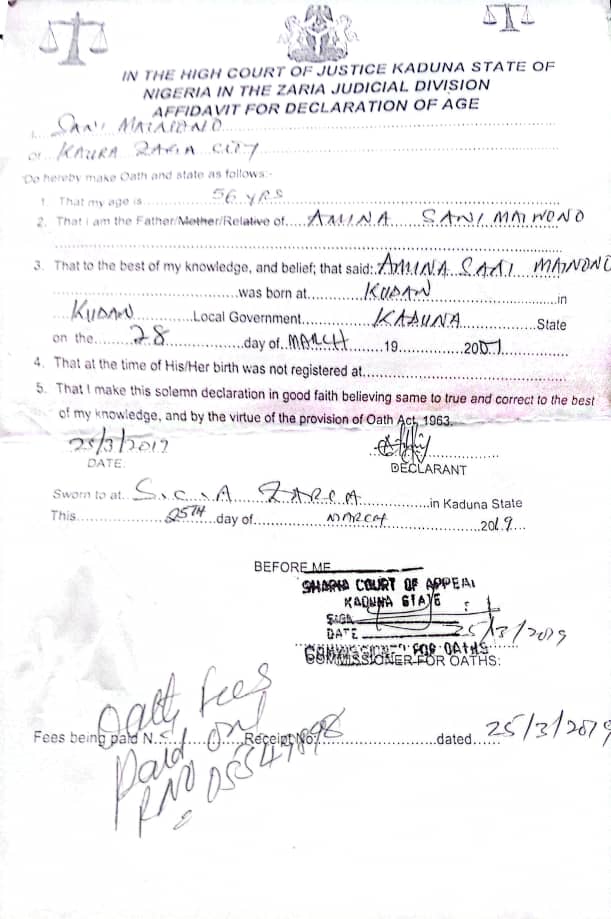 IN THE HIGH COURT OF JUSTICE KADUNA STATE OF
NIGERIA IN THE ZARIA JUDICIAL DIVISION
AFFIDAVIT FOR DECLARATION OF AGE
I, SANI MAIWONO
Of KAURA ZARIA CITY
Do hereby make Oath and state as follows:-
1. That my age is 56 YRS
2. That I am the Father/Mother/Relative of AMINA SANI MAIWONO
3. That to the best of my knowledge, and belief; that said: AMINA SANI MAIWONO
was born at KUDAN in
KUDAN Local Government KADUNA State
on the 28 day of MARCH 19 2001
4. That at the time of His/Her birth was not registered at
5. That I make this solemn declaration in good faith believing same to true and correct to the best
of my knowledge, and by the virtue of the provision of Oath Act, 1963.
25/3/2019
DATE: DECLARANT
Sworn to at S.C.A ZARIA in Kaduna State
This 25TH day of MARCH 2019
BEFORE ME
SHARIA COURT OF APPEAL
KADUNA STATE
SIGN
DATE 25/3/2019
COMMISSIONER FOR OATHS
COMMISSIONER FOR OATHS:
Oath fees
Fees being paid N. Receipt No. dated 25/3/2019
Paid on
RNO